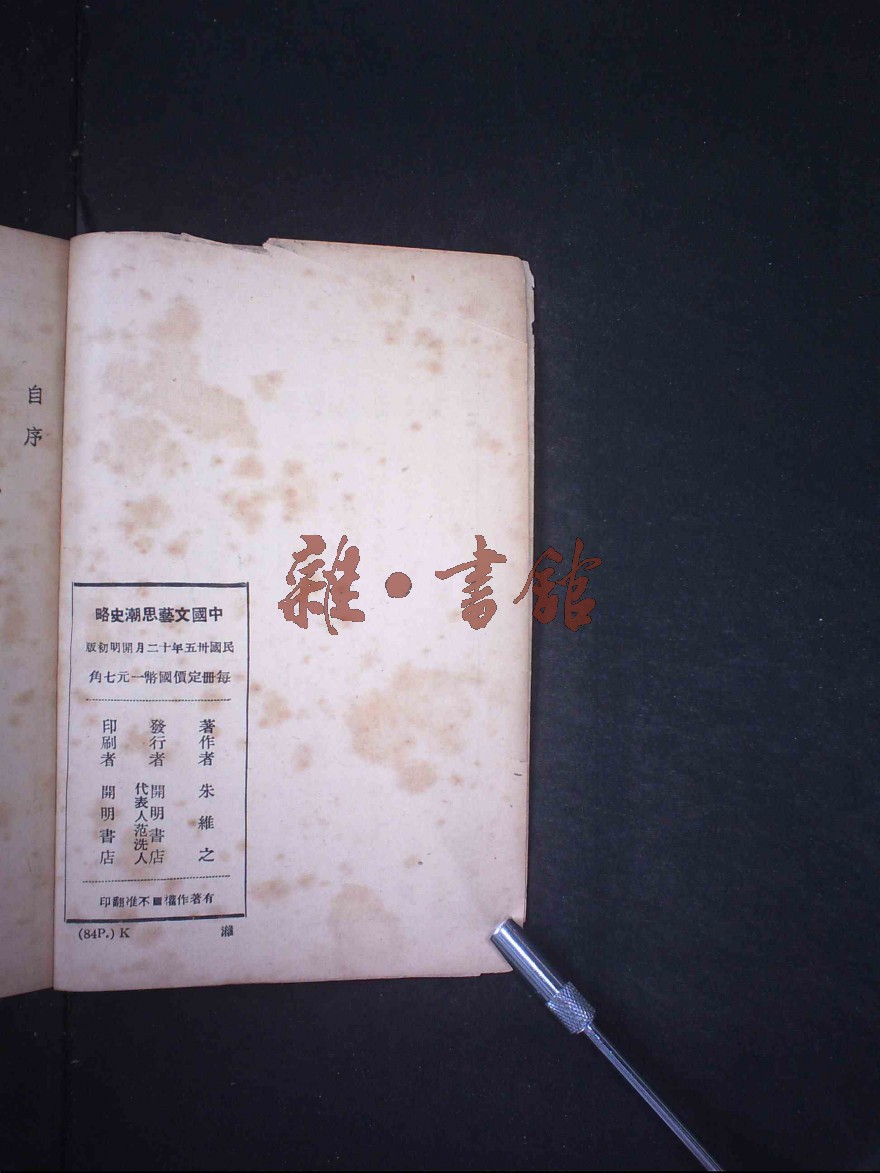 自序
中國文藝思潮史略
民國卅五年十二月開明初版
每冊定價國幣一元七角
著作者 朱維之
發行者 開明書店
代表人范洗人
印刷者 開明書店
有著作權■不准翻印
(84P.) K
雜·書館